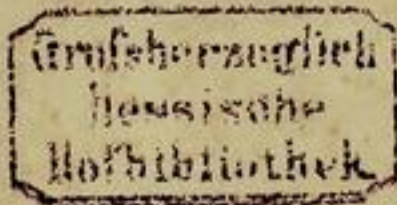 Großherzoglich
Hessische
Hofbibliothek